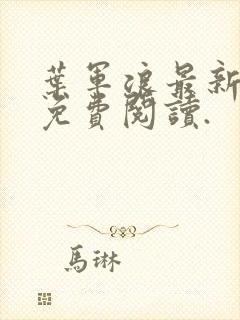 葉軍浪最新
免費閱讀.
馬琳